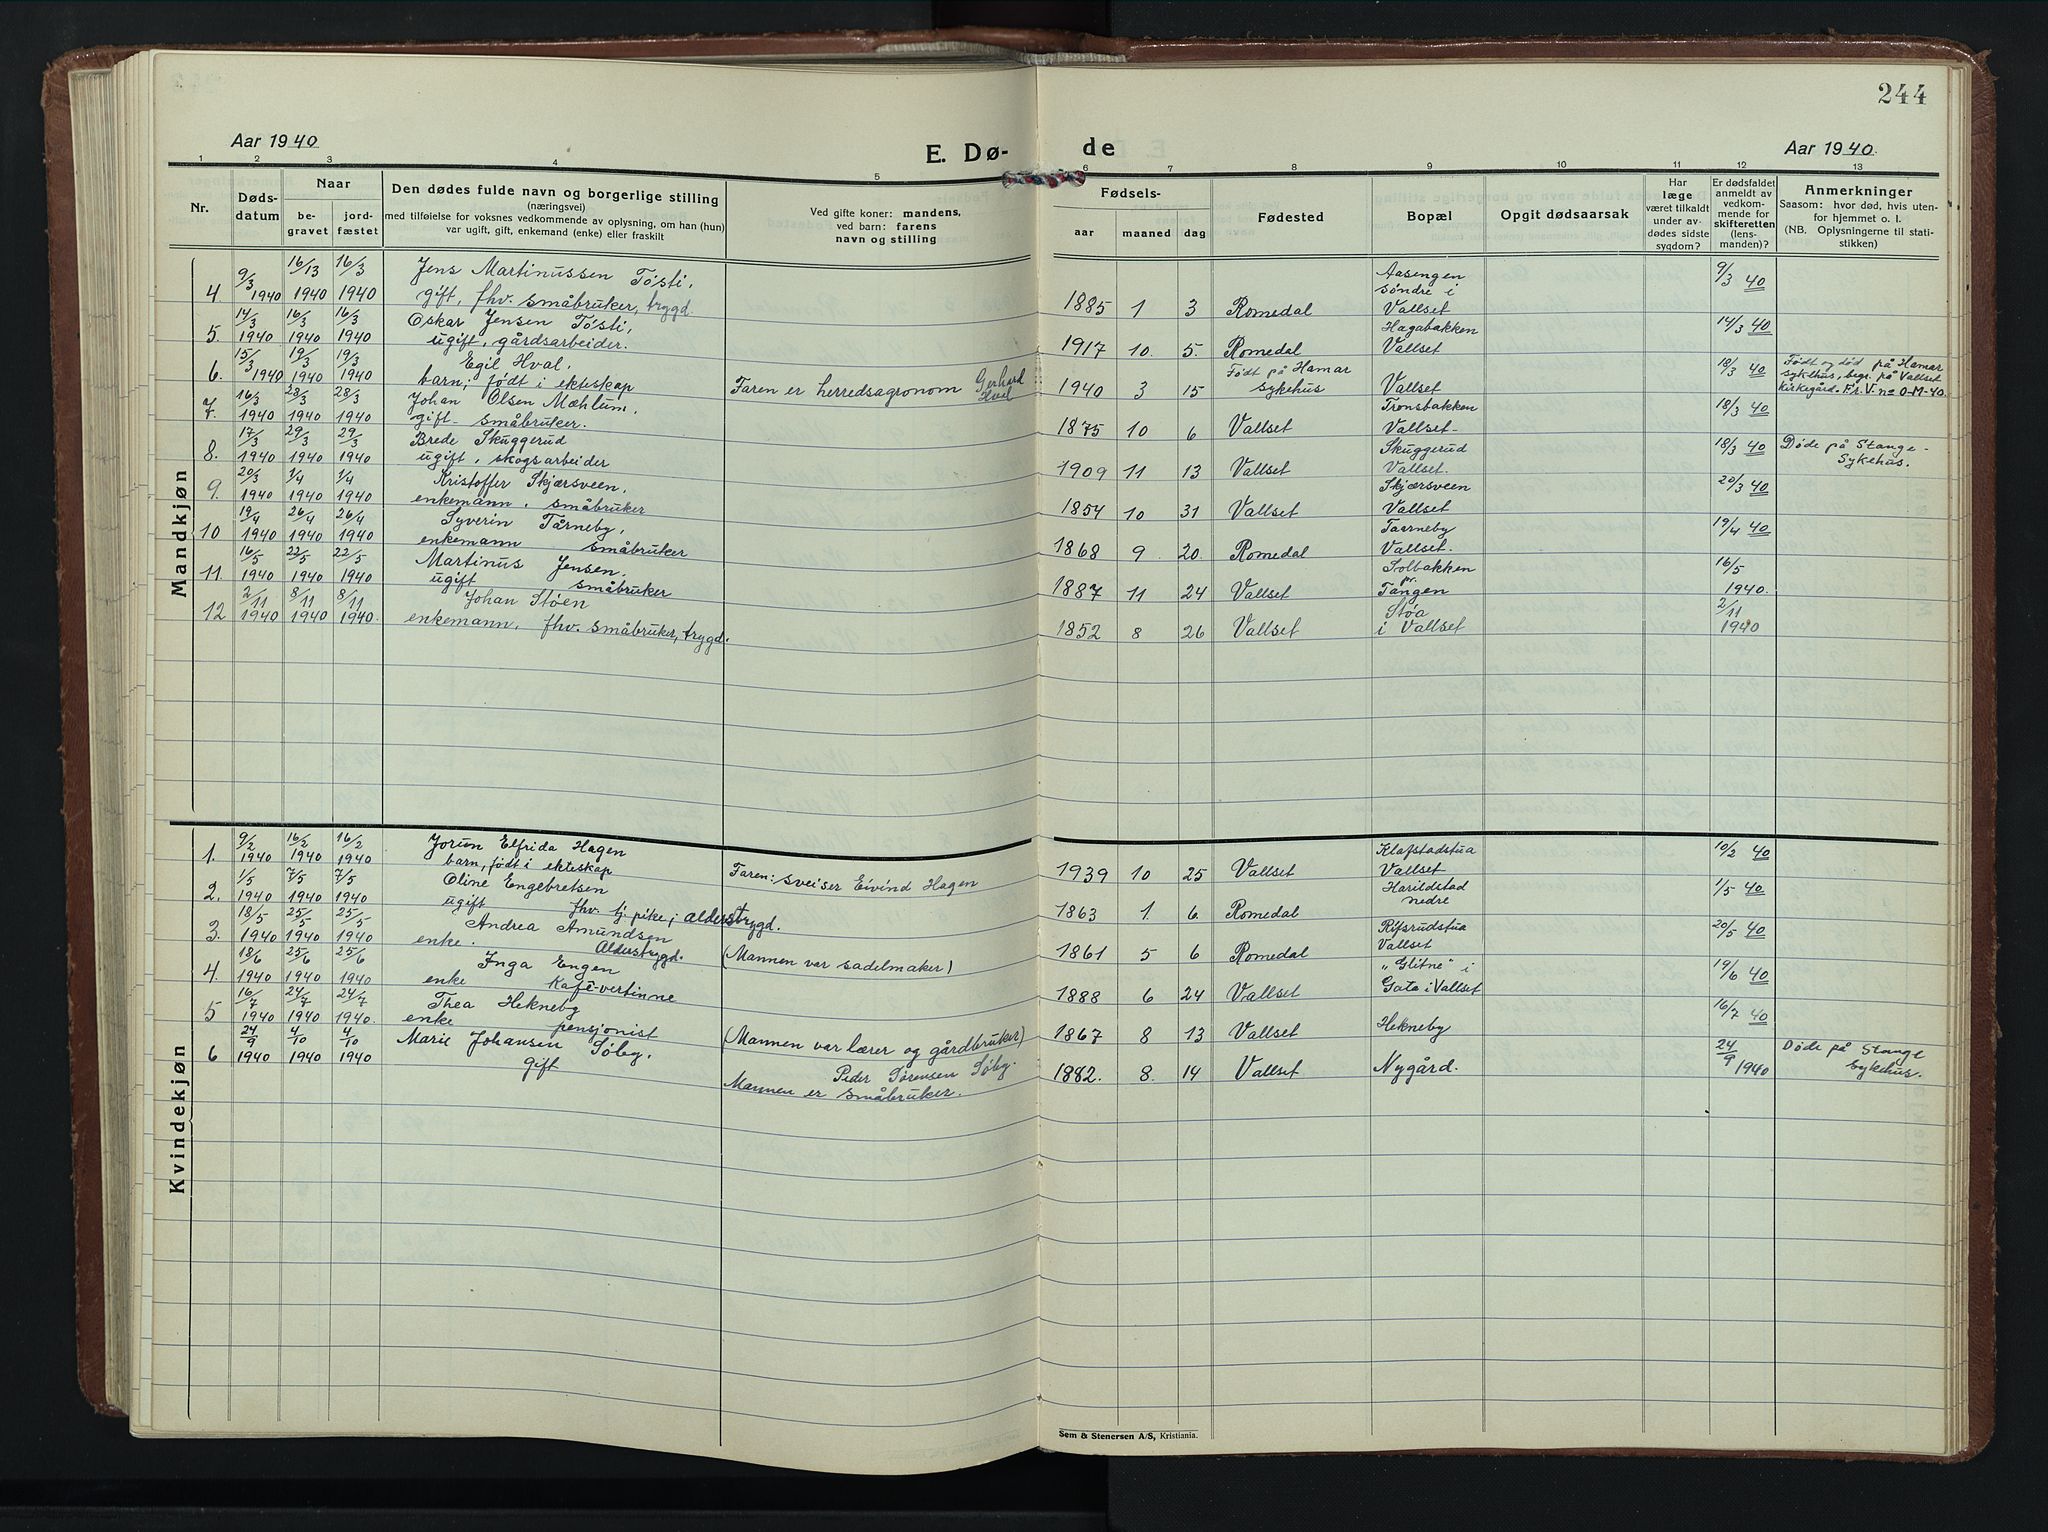 244
Aar 1940
E. Dø-
de
Aar 1940.
1 2 3 4 5 6 7 8 9 10 11 12 13
Nr.
Døds-
datum
Naar
be-
gravet
jord-
fæstet
Den dødes fulde navn og borgerlige stilling
(næringsvei)
med tilføielse for voksnes vedkommende av oplysning, om han (hun)
var ugift, gift, enkemand (enke) eller fraskilt
Ved gifte koner: mandens,
ved barn: farens
navn og stilling
Fødsels-
aar maaned dag
Fødested
Bopæl
Opgit dødsaarsak
Har
læge
været tilkaldt
under av-
dødes sidste
sygdom?
Er dødsfaldet
anmeldt av
vedkom-
mende for
skifteretten
(lens-
manden)?
Anmerkninger
Saasom: hvor død, hvis uten-
for hjemmet o. l.
(NB. Oplysningerne til stati-
stikken)
Mandkjøn
9/3 16/13 16/3 Jens Martinussen Tøsti, Aasengen 9/3 40
søndre i
4. 1940 1940 1940 gift, fhv. småbruker, trygd. 1885 1 3 Romedal Vallset
14/3 16/3 16/3 Oskar Jensen Tøsti, Hagabakken 14/3 40
5. 1940 1940 1940 ugift, gårdsarbeider. 1917 10. 5. Romedal Vallset
15/3 19/3 19/3 Egil Hval. Født på Hamar 18/3 40 Født og død på Hamar
6. 1940 1940 1940 barn, født i ekteskap Faren er herredsagronom Gerhard Hval 1940 3 15 sykehus Vallset sykehus, begr. på Vallset
kirkegård. Fr. V. no 0-M-40.
16/3 28/3 28/3 Johan Olsen Mæhlum. Tronsbakken 18/3 40
7. 1940 1940 1940 gift småbruker. 1875 10 6 Vallset Vallset
17/3 29/3 29/3 Brede Skuggerud Skuggerud 18/3 40 Døde på Stange
8. 1940 1940 1940 ugift, skogsarbeider 1909 11 13 Vallset Vallset. Sykehus.
20/3 1/4 1/4 Kristoffer Skjærsveen, Skjærsveen 20/3 40
9. 1940 1940 1940 enkemann, småbruker 1854 10 31 Vallset Vallset
19/4 26/4 26/4 Syverin Tårneby, Taarneby 19/4 40
10 1940 1940 1940 enkemann småbruker 1868 9 20. Romedal Vallset.
16/5 22/5 22/5 Martinus Jensen. Solbakken 16/5
11. 1940 1940 1940 ugift småbruker 1887 11 24 Vallset pr. Tangen 1940.
2/11 8/11 8/11 Johan Støen Støa 2/11
12 1940 1940 1940. enkemann, fhv. småbruker, trygd. 1852 8 26 Vallset i Vallset 1940
Kvindekjøn
9/2 16/2 16/2 Jorun Elfrida Hagen Klafstadstua 10/2 40
1. 1940 1940 1940 barn, født i ekteskap Faren: sveiser Eivind Hagen 1939 10 25 Vallset Vallset
1/5 7/5 7/5 Oline Engebretsen Harildstad 1/5 40
2. 1940 1940 1940 ugift fhv. tj. pike, alderstrygd. 1863 1. 6. Romedal nedre
18/5 25/5 25/5 Andrea Amundsen Rifsrudstua 20/5 40
3. 1940 1940 1940 enke. Alderstrygd. (Mannen var sadelmaker) 1861 5 6 Romedal Vallset
18/6 25/6 25/6 Inga Engen „Glitne" i 19/6 40
4. 1940 1940 1940 enke Kafé-vertinne 1888 6 24 Vallset Gata i Vallset
16/7 24/7 24/7 Thea Hekneby 16/7 40
5 1940 1940 1940. enke pensjonist (Mannen var lærer og gårdbruker) 1867 8 13 Vallset Hekneby
24/9 4/10 4/10 Marie Johansen Søby. Peder Sørensen Søby. 24/9 Døde på Stange
6 1940 1940 1940 gift Mannen er småbruker. 1882. 8. 14 Vallset Nygård. 1940 sykehus.
Sem & Stenersen A/S, Kristiania.